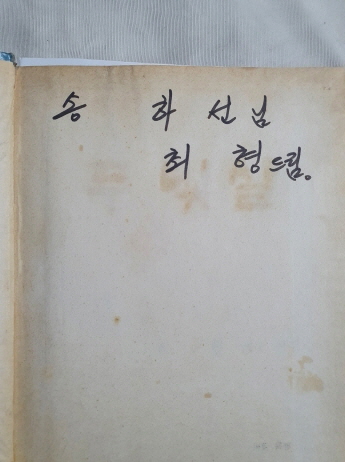 송 하 선 님
최 형 드림.